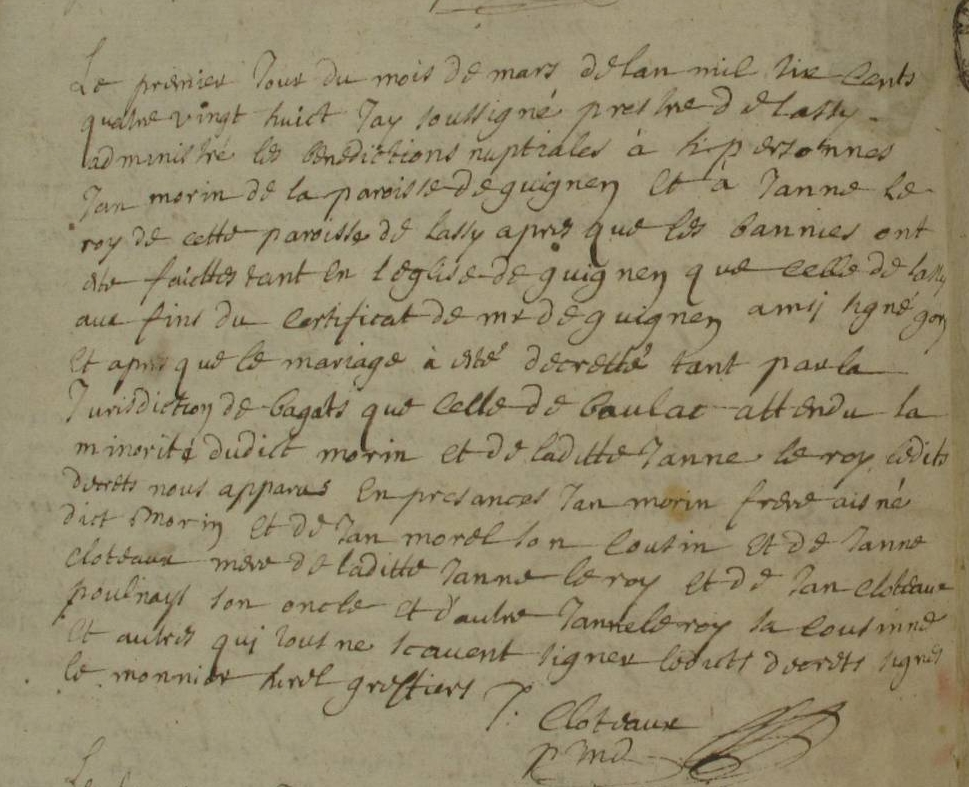 Le premier Jour du mois de mars de lan mil six cents
quatre vingt huict Jay soussigné prestre de Lassy
administré les benedictions nuptiales à h p personnes
Jan morin de la paroisse de guignen et à Janne Le
roy de cette paroisse de Lassy apres que les bannies ont
ete faictes tant en l'eglise de guignen que celle de lassy
aux fins du certificat de mr de guignen ainsi signé
et apres que le mariage à eté decretté tant par la
Jurisdiction de bagats que celle de baulac attendu la
minorité dudict morin et de laditte Janne le roy ledits
decrets nous apparus en presances Jan morin frere aisné
dict Morin et de Jan morel son cousin et de Janne
cloteaux mere de laditte Janne le roy et de Jan cloteaux
poulnays son oncle et d'autre Janne le roy sa cousinne
et autres qui tous ne scavent signer ledicts decrets signés
le monnier hurel greffiers
P. Cloteaux